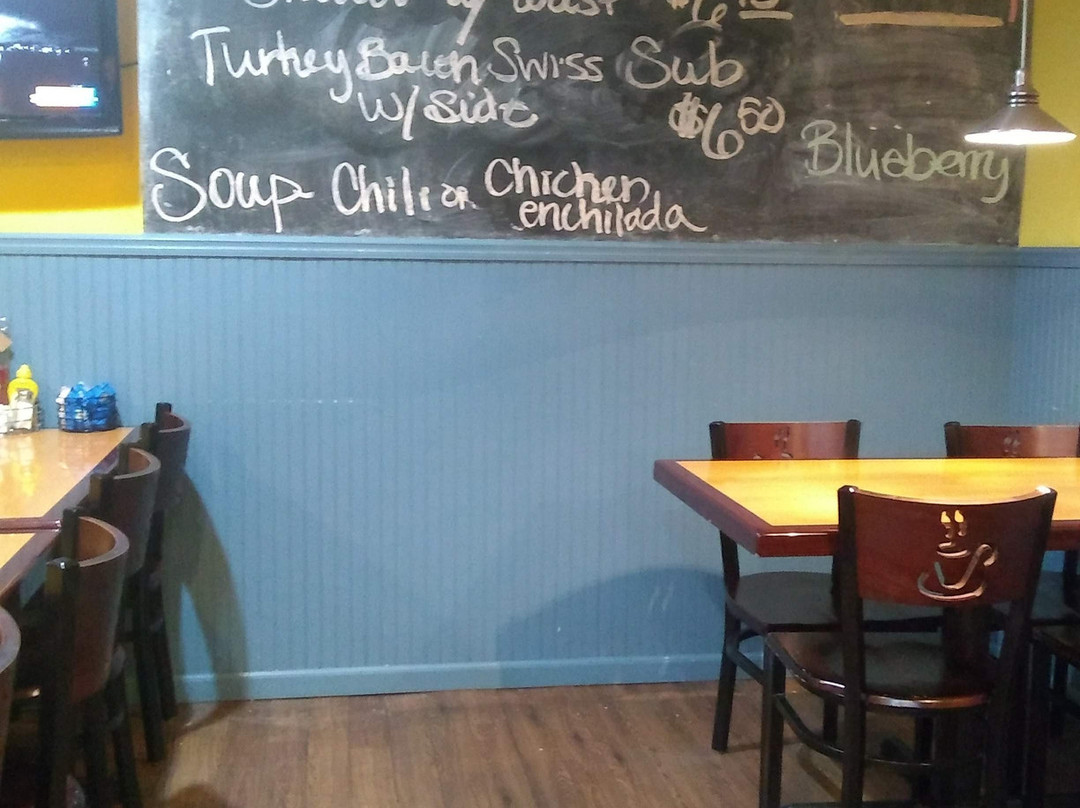 Turkey Bacon Swiss Sub
w/ Side $6.50
Blueberry
Soup Chili or Chicken enchilada